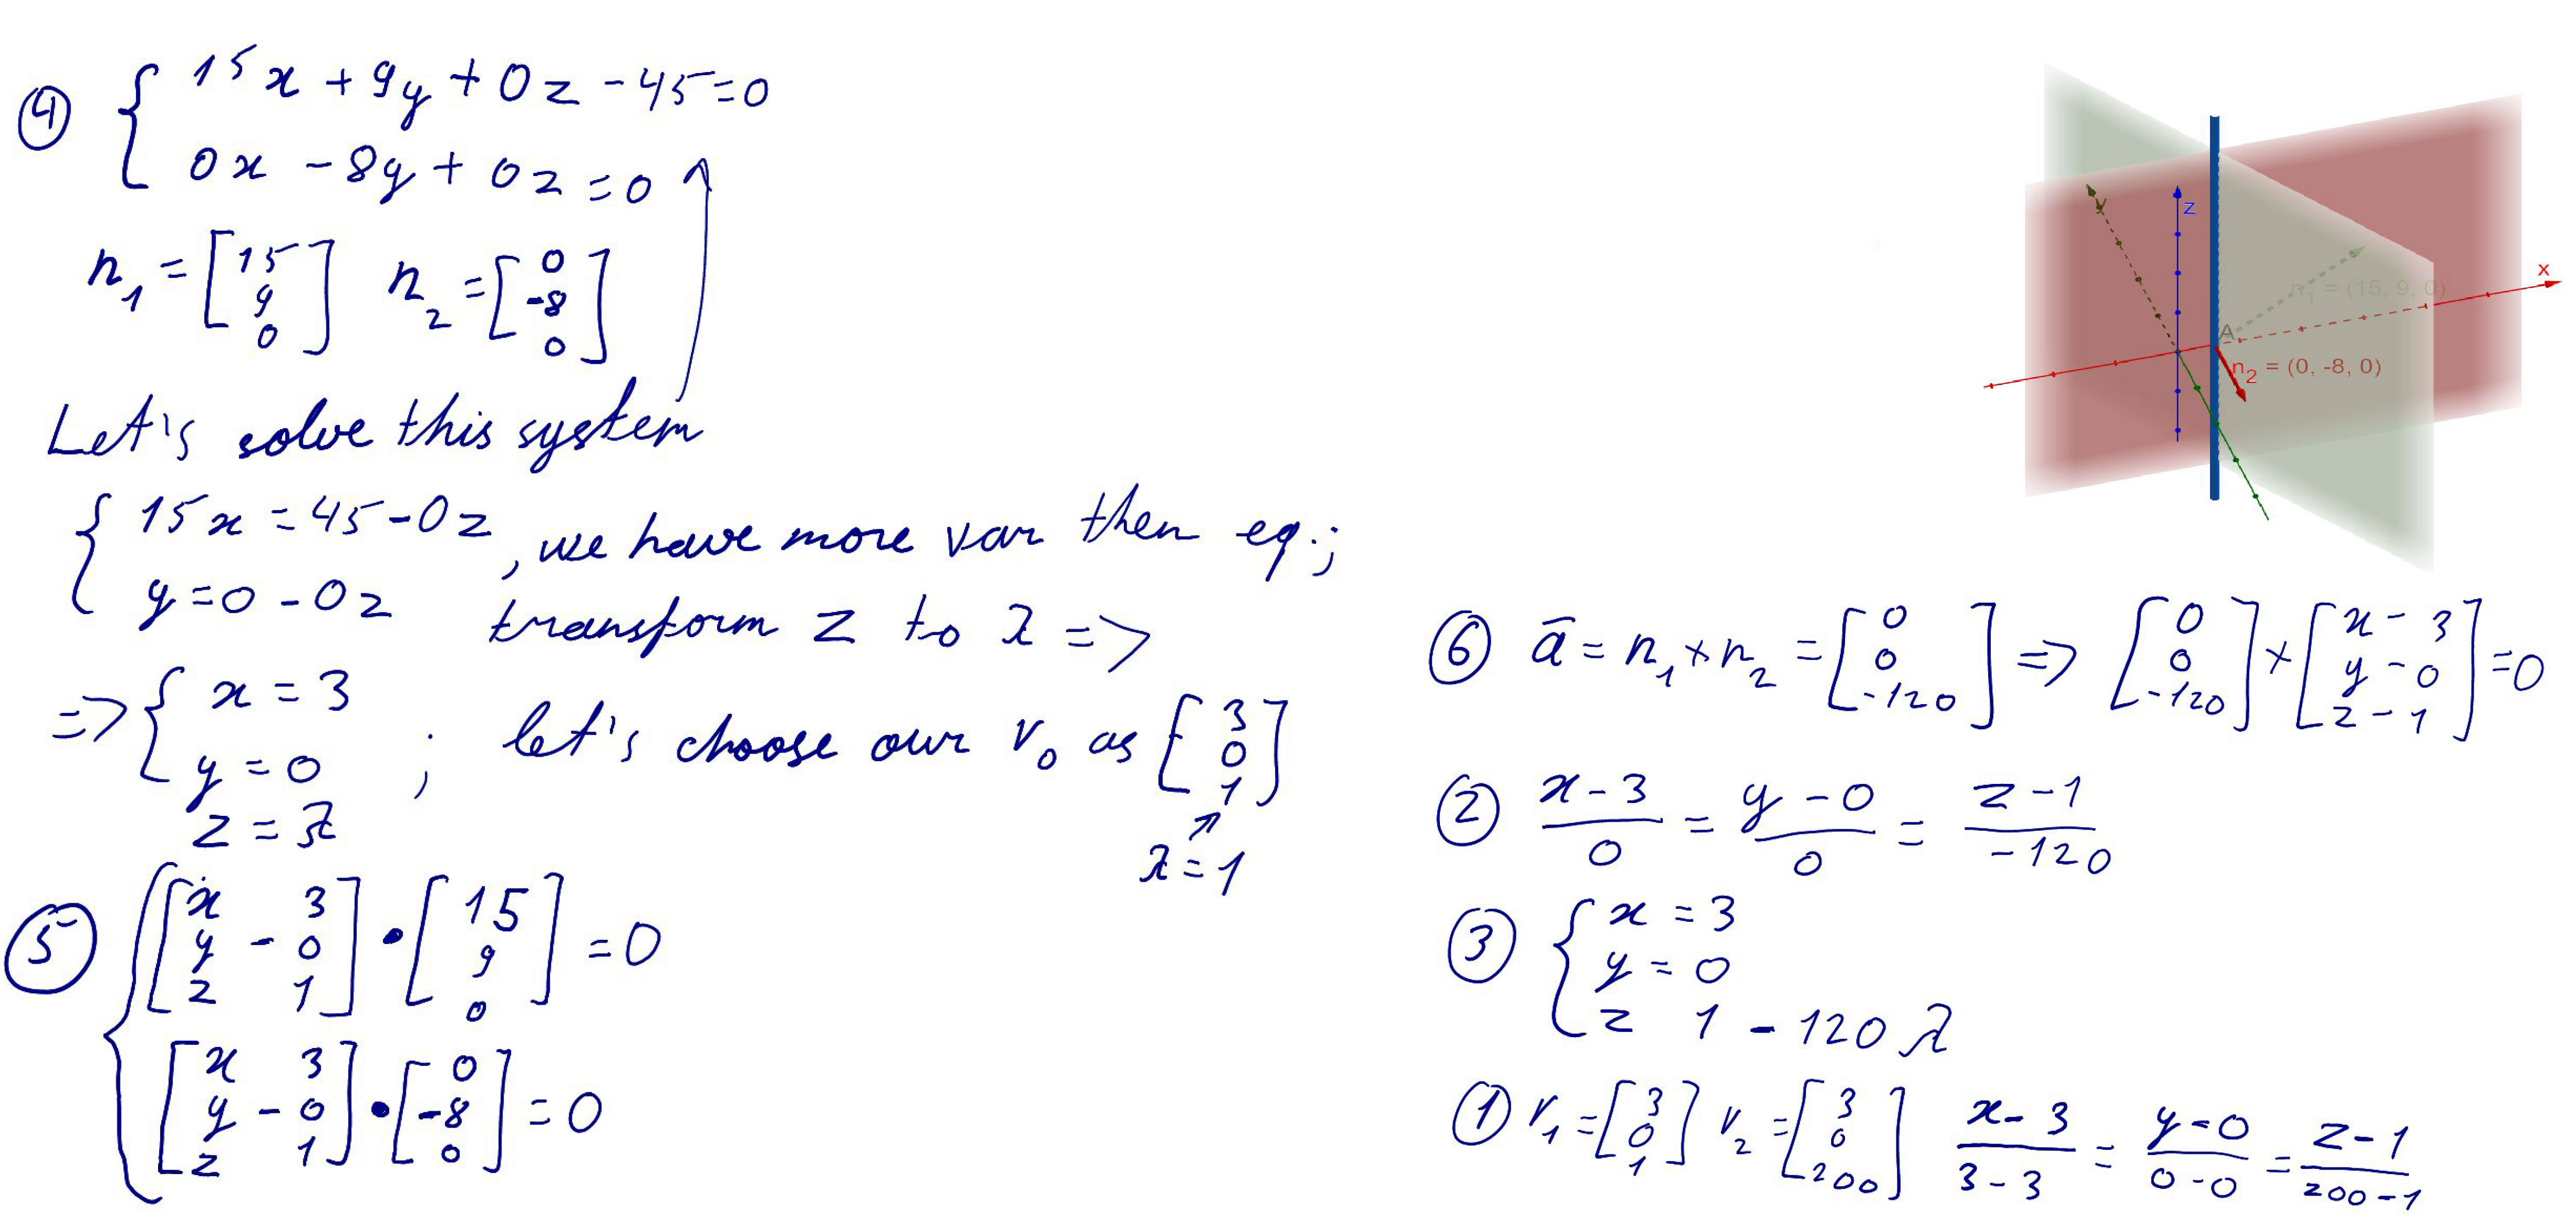 ④ { 15x + 9y + 0z - 45 = 0
0x - 8y + 0z = 0
n₁ = [15 9 0] n₂ = [0 -8 0]
Let's solve this system
{ 15x = 45 - 0z
y = 0 - 0z , we have more var then eq.;
transform z to λ =>
=> { x = 3
y = 0 ; let's choose our r₀ as [3 0 1]
z = λ
λ = 1
⑤ { [x - 3 y - 0 z 1] • [15 9 0] = 0
[x 3 y - 0 z 1] • [0 -8 0] = 0
y
z
x
n₁ = (15, 9, 0)
A
n₂ = (0, -8, 0)
⑥ ā = n₁ × n₂ = [0 0 -120] => [0 0 -120] × [x - 3 y - 0 z - 1] = 0
② (x - 3)/0 = (y - 0)/0 = (z - 1)/-120
③ { x = 3
y = 0
z 1 - 120λ
① r₁ = [3 0 1] r₂ = [3 0 200] (x - 3)/(3 - 3) = (y - 0)/(0 - 0) = (z - 1)/(200 - 1)